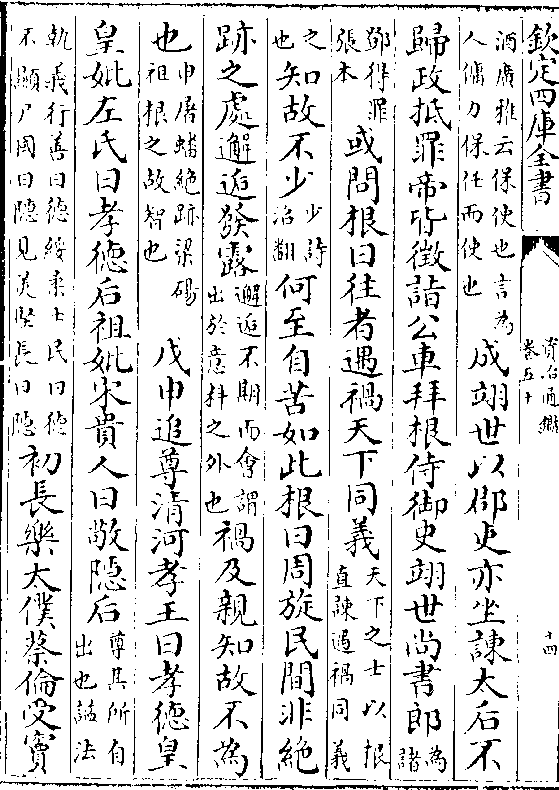 欽定四庫全書
資治通鑑
卷五十
十四
酒廣雅云保使也言為
人傭力保任而使也
成翊世以郡吏亦坐諫太后不
歸政抵罪帝皆徵詣公車拜根侍御史翊世尚書郎
為諸
鄧得罪
張本
或問根曰往者遇禍天下同義
天下之士以根
直諫遇禍同義
之
也
知故不少
少詩
沼翻
何至自苦如此根曰周旋民間非絶
跡之處邂逅發露
邂逅不期而會謂
出於意料之外也
禍及親知故不為
也
申屠蟠絶跡梁碭
祖根之故智也
戊申追尊清河孝王曰孝德皇
皇妣左氏曰孝德后祖妣宋貴人曰敬隱后
尊其所自
出也諡法
執義行善曰德綏柔士民曰德
不顯尸國曰隱見美堅長曰隱
初長樂太僕蔡倫受竇